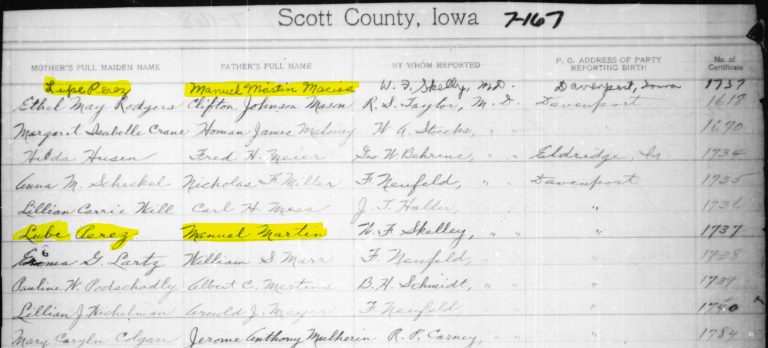 Scott County, Iowa 7-167
MOTHER'S FULL MAIDEN NAME FATHER'S FULL NAME BY WHOM REPORTED P. O. ADDRESS OF PARTY REPORTING BIRTH No. of Certificate
Lupe Perez Manuel Martin Macias W. F. Skelley, M.D. Davenport, Iowa 1737
Ethel May Rodgers Clifton Johnson Mason R. S. Taylor, M.D. Davenport 1618
Margaret Isabelle Crane Homan James Maloney W. A. Stocks, " " " 1690
Hilda Husen Fred H. Meier Geo W. Behrens, " " Eldridge, Ia 1734
Anna M. Scheckel Nicholas F. Miller F. Neufeld, " " Davenport 1735
Lillian Carrie Will Carl H. Mess J. T. Haller, " " " 1736
Lube Perez Manuel Martin W. F. Skelley, " " " 1737
G. Lartz William S. Marr F. Neufeld, " " " 1738
Pauline W. Podschadly Albert C. Martens B. H. Schmidt, " " " 1739
Lillian J. Wichelman Arnold J. Mayer F. Neufeld " " " 1740
Mary Caryln Colgan Jerome Anthony Mulherin R. P. Carney, " " " 1784